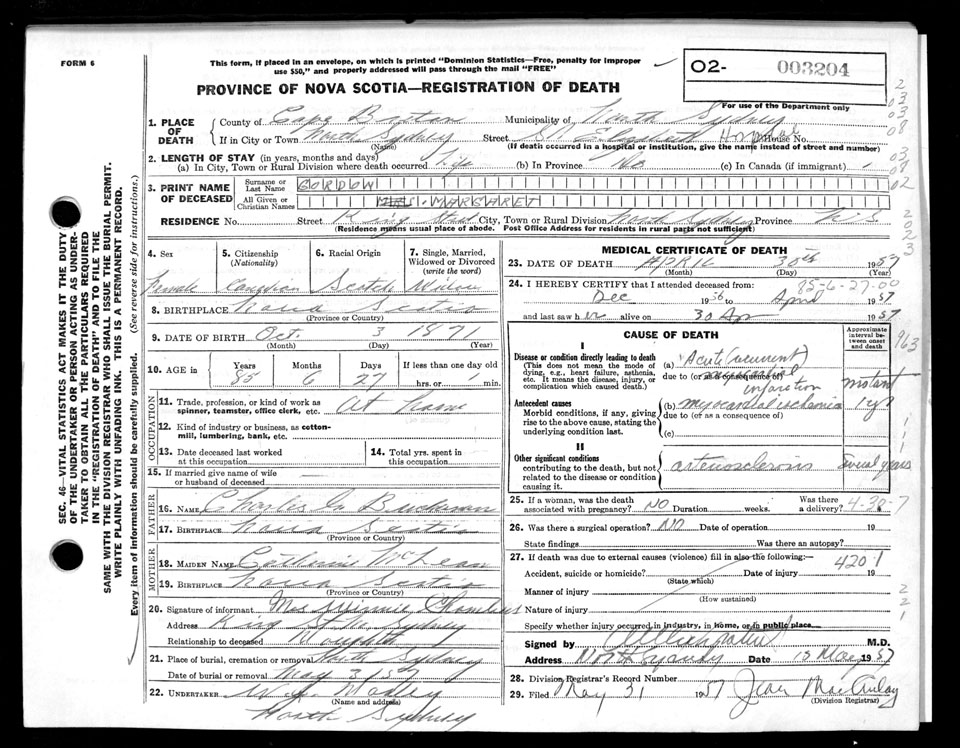 FORM 6
This form, if placed in an envelope, on which is printed "Dominion Statistics—Free, penalty for improper
use $50," and properly addressed will pass through the mail "FREE"
O2- 003204
For use of the Department only
PROVINCE OF NOVA SCOTIA—REGISTRATION OF DEATH
1. PLACE OF DEATH
County of Cape Breton Municipality of North Sydney
If in City or Town North Sydney Street St Elizabeth Hospital House No.
(Name) (If death occurred in a hospital or institution, give the name instead of street and number)
2. LENGTH OF STAY (in years, months and days)
(a) In City, Town or Rural Division where death occurred Life (b) In Province No (c) In Canada (if immigrant)
3. PRINT NAME OF DECEASED
Surname or Last Name GORDON
All Given or Christian Names MRS. MARGARET
RESIDENCE No. Street King Street City, Town or Rural Division North Sydney Province N.S.
(Residence means usual place of abode. Post Office Address for residents in rural parts not sufficient)
4. Sex
Female
5. Citizenship
(Nationality)
Canadian
6. Racial Origin
Scotch
7. Single, Married,
Widowed or Divorced
(write the word)
Widow
8. BIRTHPLACE Nova Scotia
(Province or Country)
9. DATE OF BIRTH Oct. 3 1871
(Month) (Day) (Year)
10. AGE in Years Months Days If less than one day old
85 6 27 hrs. or min.
OCCUPATION
11. Trade, profession, or kind of work as
spinner, teamster, office clerk, etc. At home
12. Kind of industry or business, as cotton-
mill, lumbering, bank, etc.
13. Date deceased last worked
at this occupation
14. Total yrs. spent in
this occupation
15. If married give name of wife
or husband of deceased
FATHER
16. NAME Charles
17. BIRTHPLACE Nova Scotia
(Province or Country)
MOTHER
18. MAIDEN NAME Catherine McLean
19. BIRTHPLACE Nova Scotia
(Province or Country)
20. Signature of informant Mrs Minnie
Address King St. N. Sydney
Relationship to deceased Daughter
21. Place of burial, cremation or removal North Sydney
Date of burial or removal May 3/57
22. UNDERTAKER
(Name and address)
North Sydney
MEDICAL CERTIFICATE OF DEATH
23. DATE OF DEATH APRIL 30th 1957
(Month) (Day) (Year)
85-6-27-00
24. I HEREBY CERTIFY that I attended deceased from:
Dec 1956 to April 1957
and last saw her alive on 30 Ap 1957
CAUSE OF DEATH
Approximate
interval be-
tween onset
and death
I
Disease or condition directly leading to death
(This does not mean the mode of
dying, e.g., heart failure, asthenia,
etc. It means the disease, injury, or
complication which caused death.)
(a) Acute (recurrent)
due to (or as consequence of) myocardial
infarction instant
Antecedent causes
Morbid conditions, if any, giving
rise to the above cause, stating the
underlying condition last.
(b) myocardial ischemia 1 yr
due to (or as a consequence of)
(c)
II
Other significant conditions
contributing to the death, but not
related to the disease or condition
causing it.
arteriosclerosis Several years
25. If a woman, was the death
associated with pregnancy? NO Duration weeks. Was there
a delivery? 4-20-7
26. Was there a surgical operation? NO Date of operation 19
State findings Was there an autopsy?
27. If death was due to external causes (violence) fill in also the following:
420.1
Accident, suicide or homicide? Date of injury 19
(State which)
Manner of injury
(How sustained)
Nature of injury
Specify whether injury occurred in industry, in home, or in public place
Signed by M.D.
Address North Sydney Date 15 May 1957
28. Division Registrar's Record Number
29. Filed May 31 1957 Jean MacAulay
(Division Registrar)
963
SEC. 46—VITAL STATISTICS ACT MAKES IT THE DUTY
OF THE UNDERTAKER OR PERSON ACTING AS UNDER-
TAKER TO OBTAIN ALL THE PARTICULARS REQUIRED
IN THE "REGISTRATION OF DEATH" AND TO FILE THE
SAME WITH THE DIVISION REGISTRAR WHO SHALL ISSUE THE BURIAL PERMIT.
WRITE PLAINLY WITH UNFADING INK. THIS IS A PERMANENT RECORD.
Every item of information should be carefully supplied. (See reverse side for instructions.)